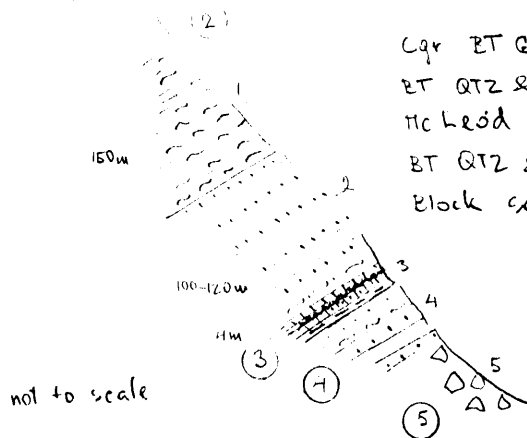 (2)
Cgr BT
BT QTZ
McLeod
BT QTZ
Block
1
150m
2
100-120m
3
4m
4
(3)
(4)
5
(5)
not to scale